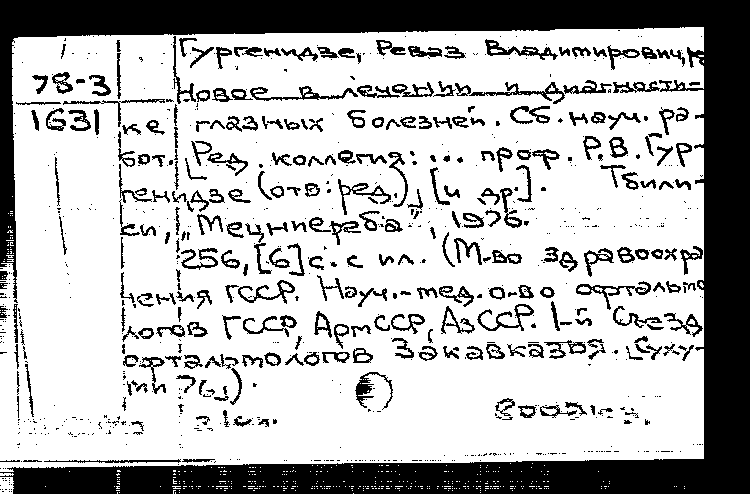 Гургенидзе, Реваз Владимирович,
78-3 Новое в лечении и диагности-
1631 ке глазных болезней. Сб. науч. ра-
бот. [Ред. коллегия: ... проф. Р.В. Гур-
генидзе (отв. ред.)], [и др.]. Тбили-
си, „Мецниереба", 1976.
256, [6] с. с ил. (М-во здравоохра
нения ГССР. Науч.-мед. о-во офтальмо
логов ГССР, АрмССР, АзССР. 1-й Съезд
офтальмологов Закавказья. [Суху-
ми 76]).